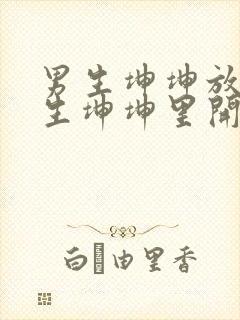 男生坤坤放
生坤坤里開
白�由里香